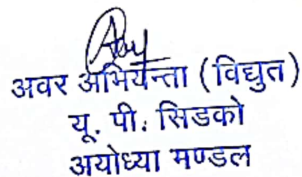 अवर अभियन्ता (विधुत)
यू. पी. सिडको
अयोध्या मण्डल